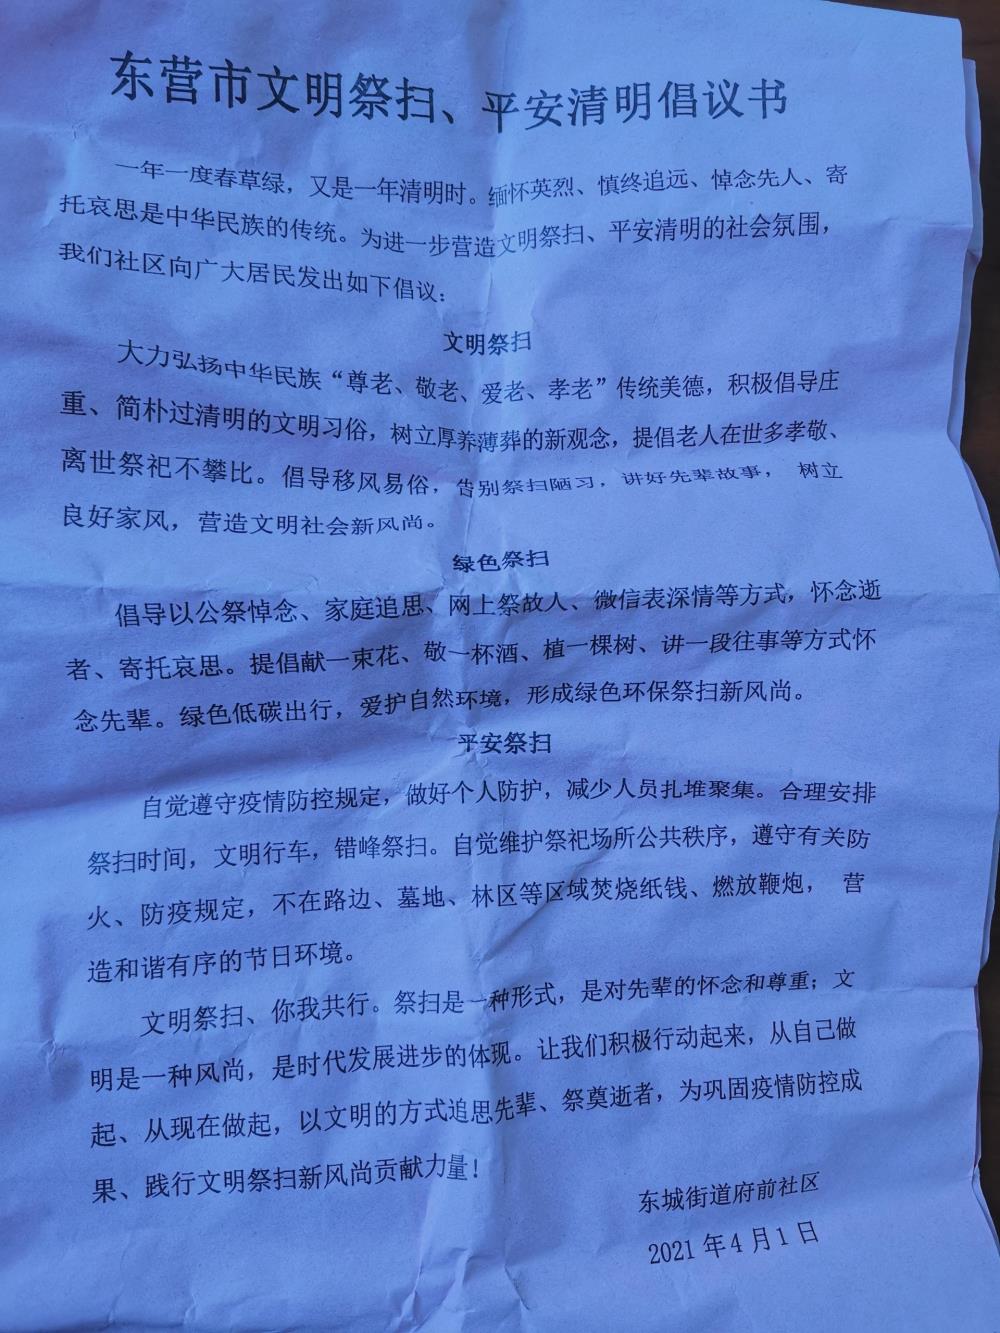 东营市文明祭扫、平安清明倡议书
一年一度春草绿，又是一年清明时。缅怀英烈、慎终追远、悼念先人、寄
托哀思是中华民族的传统。为进一步营造文明祭扫、平安清明的社会氛围，
我们社区向广大居民发出如下倡议：
文明祭扫
大力弘扬中华民族“尊老、敬老、爱老、孝老”传统美德，积极倡导庄
重、简朴过清明的文明习俗，树立厚养薄葬的新观念，提倡老人在世多孝敬、
离世祭祀不攀比。倡导移风易俗，告别祭扫陋习，讲好先辈故事， 树立
良好家风，营造文明社会新风尚。
绿色祭扫
倡导以公祭悼念、家庭追思、网上祭故人、微信表深情等方式，怀念逝
者、寄托哀思。提倡献一束花、敬一杯酒、植一棵树、讲一段往事等方式怀
念先辈。绿色低碳出行，爱护自然环境，形成绿色环保祭扫新风尚。
平安祭扫
自觉遵守疫情防控规定，做好个人防护，减少人员扎堆聚集。合理安排
祭扫时间，文明行车，错峰祭扫。自觉维护祭祀场所公共秩序，遵守有关防
火、防疫规定，不在路边、墓地、林区等区域焚烧纸钱、燃放鞭炮， 营
造和谐有序的节日环境。
文明祭扫、你我共行。祭扫是一种形式，是对先辈的怀念和尊重；文
明是一种风尚，是时代发展进步的体现。让我们积极行动起来，从自己做
起、从现在做起，以文明的方式追思先辈、祭奠逝者，为巩固疫情防控成
果、践行文明祭扫新风尚贡献力量！
东城街道府前社区
2021年4月1日